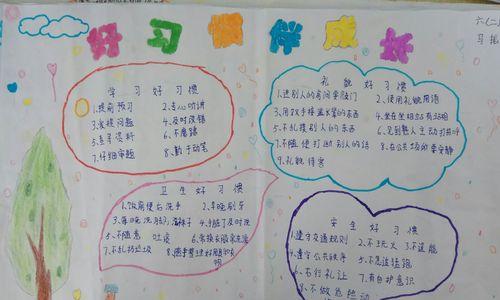 好习惯伴成长
六(二)
习
学习好习惯
1.提前预习 2.专心听讲
3.发现问题 4.及时改错
5.查寻资料 6.不磨蹭
7.仔细审题 8.勤于动笔
礼貌好习惯
1.进别人的房间要敲门 2.使用礼貌用语
3.用双手接递长辈的东西 4.坐有坐相站有站相
5.不乱摸别人的东西 6.见到熟人主动打招呼
7.不随便打断别人的话 8.在公共场所要安静
9.礼貌待客
卫生好习惯
1.饭前便后洗手 2.早晚刷牙
3.每晚洗脚 袜子 4.手脏了及时洗
5.不随意吐痰 6.常换衣服常洗澡
7.不乱扔垃圾
安全好习惯
1.遵守交通规则 2.不玩火 3.不逗能
4.遵守公共秩序 5.不急追猛跑
6.不行礼让 7.有自护意识
8.不做危险动